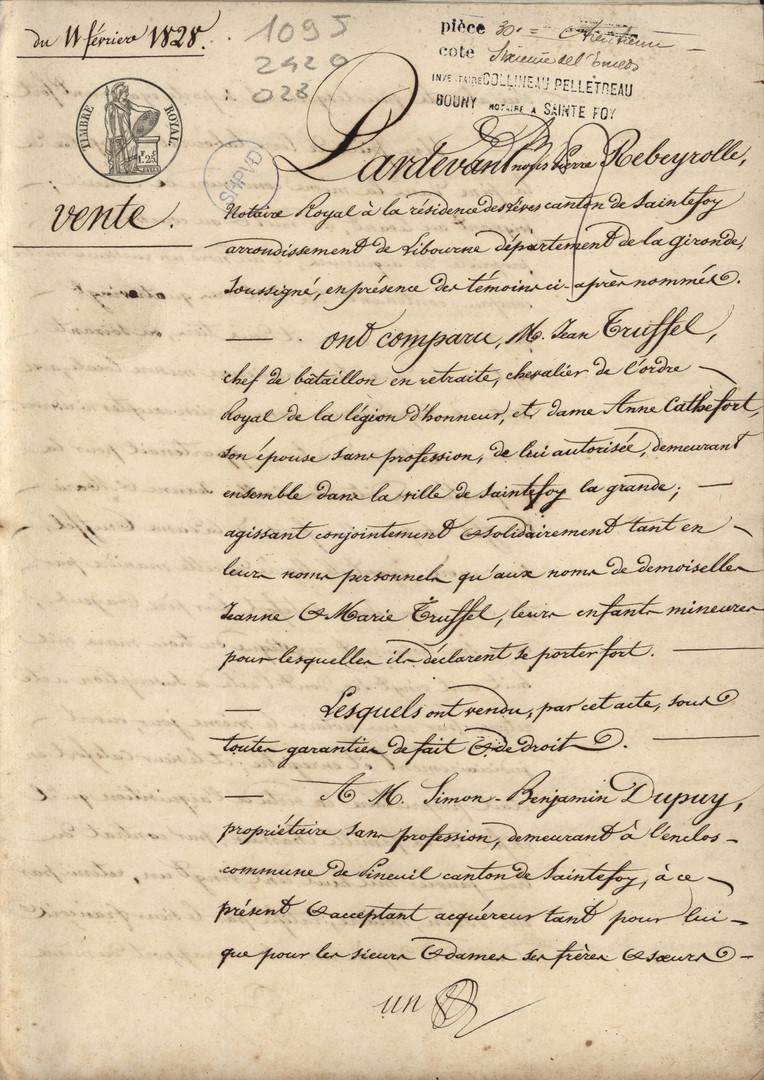 du 11 février 1828.
1095
2420
028
pièce 30e =
cote Sixième de l'Enclos
INVENTAIRE COLLINEAU PELLETREAU
BOUNY NOTAIRE A SAINTE FOY
TIMBRE ROYAL
1 F. 25 C.
SHPVD
vente.
Pardevant nous Pierre Rebeyrolle,
Notaire Royal à la résidence des Lèves canton de Saintefoy
arrondissement de Libourne département de la gironde,
soussigné, en présence des témoins ci-après nommés.
— ont comparu, M. Jean Truffel,
chef de bataillon en retraite, chevalier de l'ordre —
Royal de la légion d'honneur, et dame Anne Cathefort,
son épouse sans profession, de lui autorisée, demeurant
ensemble dans la ville de Saintefoy la grande; —
agissant conjointement & solidairement tant en —
leurs noms personnels qu'aux noms de demoiselles
Jeanne & Marie Truffel, leurs enfants mineures
pour lesquelles ils déclarent se porter fort. —
— Lesquels ont vendu, par cet acte, sous
toutes garanties de fait & de droit. —
— A M. Simon-Benjamin Dupuy,
propriétaire sans profession, demeurant à l'enclos —
commune de Pineuil canton de Saintefoy, à ce —
présent & acceptant acquéreur tant pour lui —
que pour les sieurs & dames ses frères & sœurs —
un